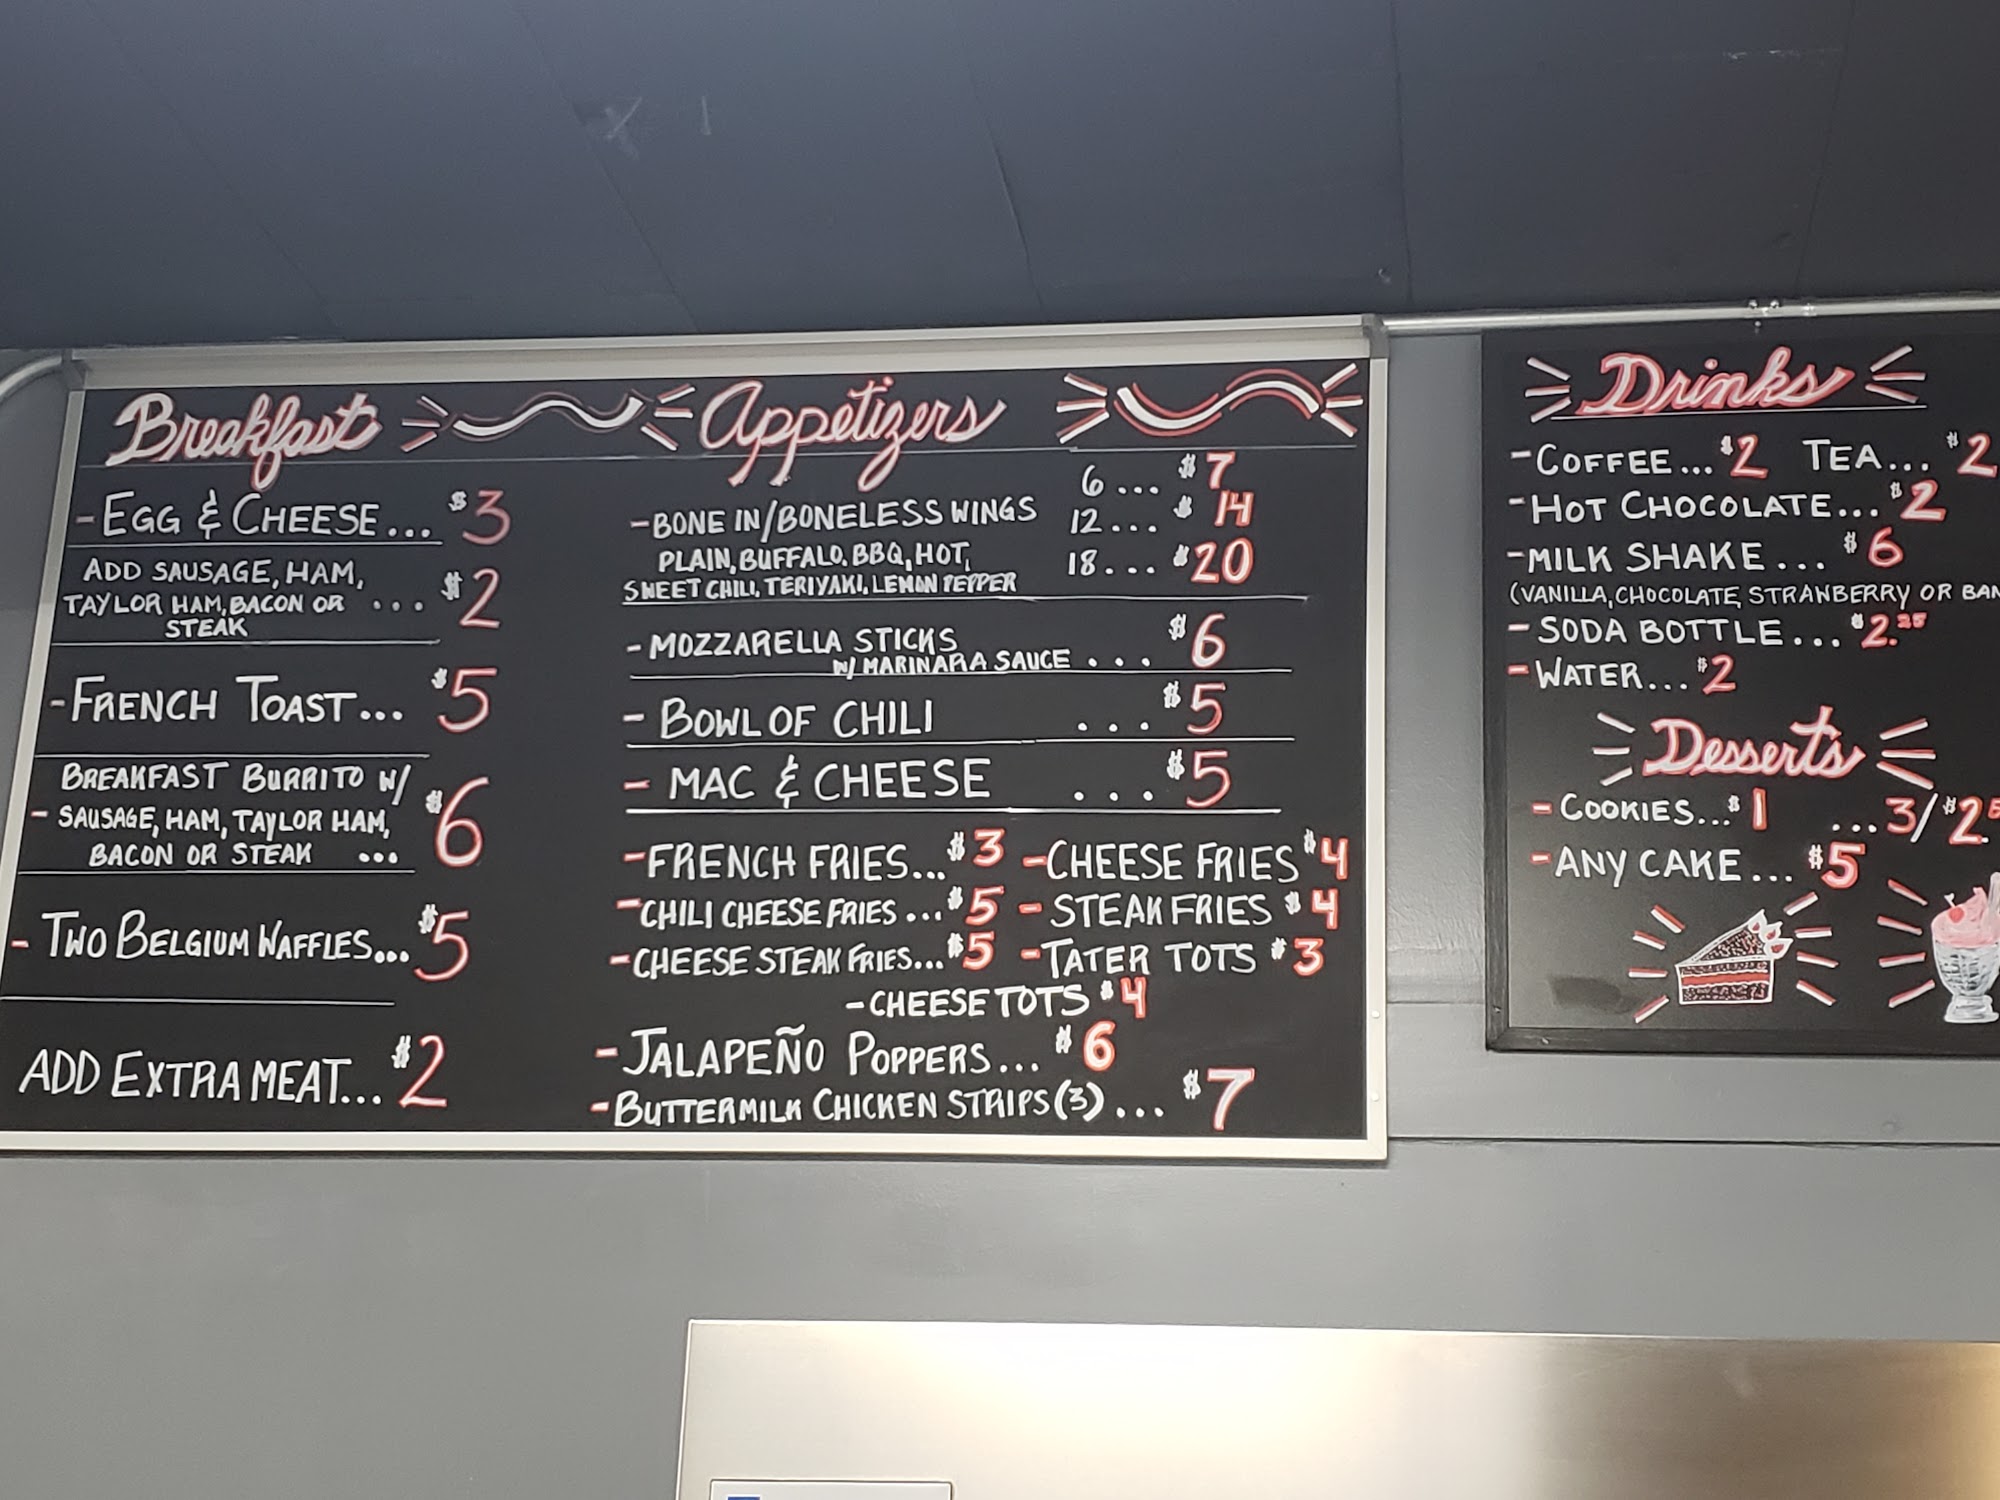 Breakfast
- EGG & CHEESE... $3
ADD SAUSAGE, HAM,
TAYLOR HAM, BACON OR ... $2
STEAK
- FRENCH TOAST... $5
BREAKFAST BURRITO W/
- SAUSAGE, HAM, TAYLOR HAM, $6
BACON OR STEAK ...
- TWO BELGIUM WAFFLES... $5
ADD EXTRA MEAT... $2
Appetizers
6 ... $7
- BONE IN/BONELESS WINGS 12... $14
PLAIN, BUFFALO, BBQ, HOT, 18... $20
SWEET CHILI, TERIYAKI, LEMON PEPPER
- MOZZARELLA STICKS $6
W/ MARINARA SAUCE ...
- BOWL OF CHILI ... $5
- MAC & CHEESE ... $5
- FRENCH FRIES... $3 - CHEESE FRIES $4
- CHILI CHEESE FRIES ... $5 - STEAK FRIES $4
- CHEESE STEAK FRIES... $5 - TATER TOTS $3
- CHEESE TOTS $4
- JALAPEÑO POPPERS... $6
- BUTTERMILK CHICKEN STRIPS (3) ... $7
Drinks
- COFFEE... $2 TEA... $2
- HOT CHOCOLATE... $2
- MILK SHAKE... $6
(VANILLA, CHOCOLATE, STRAWBERRY OR
- SODA BOTTLE... $2.25
- WATER... $2
Desserts
- COOKIES... $1 ...3/$2.
- ANY CAKE... $5